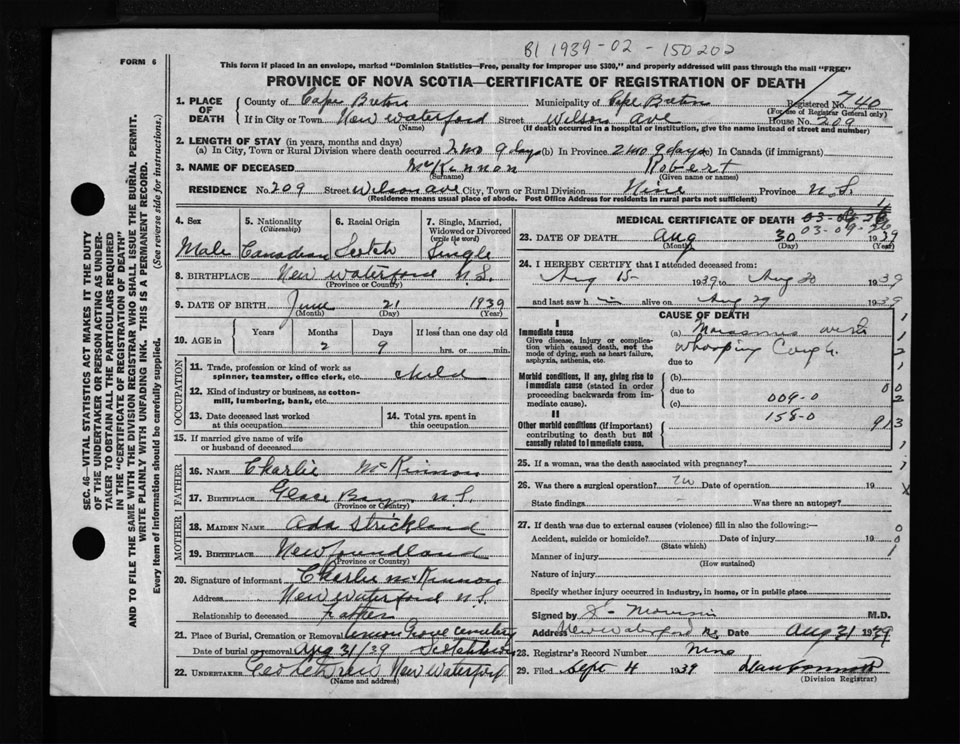 B1 1939-02-150202
FORM 6
This form if placed in an envelope, marked "Dominion Statistics—Free, penalty for improper use $300," and properly addressed will pass through the mail "FREE"
PROVINCE OF NOVA SCOTIA—CERTIFICATE OF REGISTRATION OF DEATH
SEC. 46—VITAL STATISTICS ACT MAKES IT THE DUTY
OF THE UNDERTAKER OR PERSON ACTING AS UNDER-
TAKER TO OBTAIN ALL THE PARTICULARS REQUIRED
IN THE "CERTIFICATE OF REGISTRATION OF DEATH"
AND TO FILE THE SAME WITH THE DIVISION REGISTRAR WHO SHALL ISSUE THE BURIAL PERMIT.
WRITE PLAINLY WITH UNFADING INK. THIS IS A PERMANENT RECORD.
Every item of information should be carefully supplied. (See reverse side for instructions.)
1. PLACE OF DEATH County of Cape Breton Municipality of Cape Breton Registered No. 740
(For use of Registrar General only)
If in City or Town New Waterford Street Wilson Ave House No. 209
(Name) (If death occurred in a hospital or institution, give the name instead of street and number)
2. LENGTH OF STAY (in years, months and days)
(a) In City, Town or Rural Division where death occurred 2 mo 9 days (b) In Province 2 mo 9 days (c) In Canada (if immigrant)
3. NAME OF DECEASED McKinnon Robert
(Surname) (Given name or names)
RESIDENCE No. 209 Street Wilson Ave City, Town or Rural Division Nine Province N.S.
(Residence means usual place of abode. Post Office Address for residents in rural parts not sufficient)
4. Sex 5. Nationality (Citizenship) 6. Racial Origin 7. Single, Married, Widowed or Divorced (write the word)
Male Canadian Scotch Single
8. BIRTHPLACE New Waterford N.S.
(Province or Country)
9. DATE OF BIRTH June 21 1939
(Month) (Day) (Year)
10. AGE in Years Months Days If less than one day old
2 9 hrs. or min.
OCCUPATION
11. Trade, profession or kind of work as spinner, teamster, office clerk, etc. child
12. Kind of industry or business, as cotton-mill, lumbering, bank, etc.
13. Date deceased last worked at this occupation 14. Total yrs. spent in this occupation
15. If married give name of wife or husband of deceased
FATHER
16. NAME Charlie McKinnon
17. BIRTHPLACE Glace Bay N.S.
(Province or Country)
MOTHER
18. MAIDEN NAME Ada Strickland
19. BIRTHPLACE Newfoundland
(Province or Country)
20. Signature of informant Charlie McKinnon
Address New Waterford N.S.
Relationship to deceased Father
21. Place of Burial, Cremation or Removal Union Grove Cemetery
Date of burial or removal Aug 31/39 Scotchtown
22. UNDERTAKER New Waterford
(Name and address)
MEDICAL CERTIFICATE OF DEATH
03-09-26
23. DATE OF DEATH Aug 30 1939
(Month) (Day) (Year)
24. I HEREBY CERTIFY that I attended deceased from:
Aug 15 1939 to Aug 30 1939
and last saw him alive on Aug 29 1939
CAUSE OF DEATH
I
Immediate cause (a) Marasmus with
Give disease, injury or complication which caused death, not the mode of dying, such as heart failure, asphyxia, asthenia, etc. Whooping Cough
due to
Morbid conditions, if any, giving rise to immediate cause (stated in order proceeding backwards from immediate cause). (b)
due to
(c) 009-0
II
158-0
Other morbid conditions (if important) contributing to death but not causally related to immediate cause. 913
25. If a woman, was the death associated with pregnancy?
26. Was there a surgical operation? No Date of operation 19
State findings Was there an autopsy?
27. If death was due to external causes (violence) fill in also the following:—
Accident, suicide or homicide? Date of injury 19
(State which)
Manner of injury
(How sustained)
Nature of injury
Specify whether injury occurred in industry, in home, or in public place
Signed by M.D.
Address New Waterford NS Date Aug 31 1939
28. Registrar's Record Number nine
29. Filed Sept 4 1939
(Division Registrar)